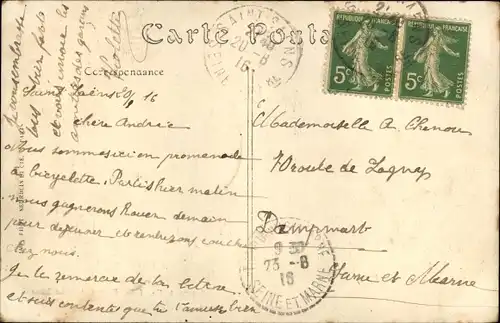 Carte Postale
Correspondance
SAINT-SAENS
20 -8
16
RÉPUBLIQUE FRANÇAISE
5c POSTES
RÉPUBLIQUE FRANÇAISE
5c POSTES
Saint Saëns 20/8 16
Chère Andrée
Nous sommes ici en promenade
à bicyclette. Partis hier matin
nous gagnerons Rouen demain
pour déjeuner et rentrons coucher
chez nous.
Je te remercie de ta lettre
et suis contente que tu t'amuses bien
Je vous embrasse
tous bien fort
et vous
les garçons
Colette
Mademoiselle A. Chenou
70 route de Lagny
Dampmart
Seine et Marne
9 30
23 -8
16
SEINE ET MARNE